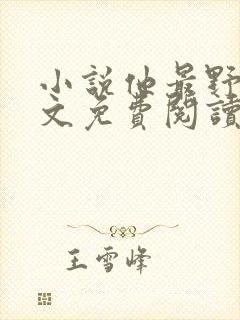 小說他最野
文免費閱讀
王雪峰